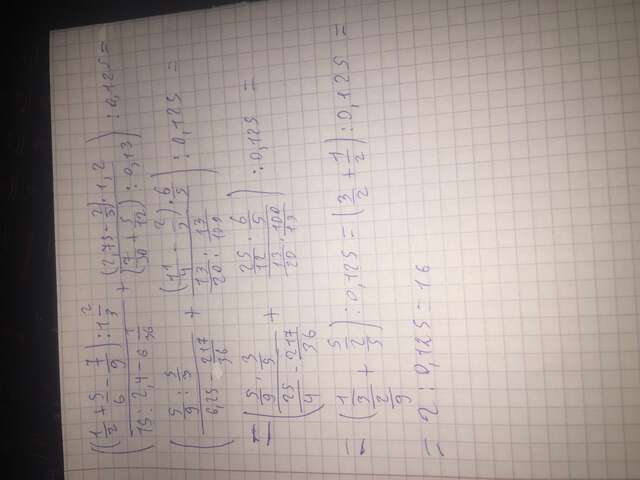 (((1/2 + 5/6 - 7/9) : 1 2/3)/(15 : 2,4 - 6 1/36) + ((2,75 - 2/3) · 1,2)/((7/30 + 5/12) : 0,13)) : 0,125 =
((5/9 : 5/3)/(6,25 - 217/36) + ((11/4 - 2/3) · 6/5)/(13/20 : 13/100)) : 0,125 =
= ((5/9 · 3/5)/(25/4 - 217/36) + (25/12 · 6/5)/(13/20 · 100/13)) : 0,125 =
= ((1/3)/(2/9) + (5/2)/5) : 0,125 = (3/2 + 1/2) : 0,125 =
= 2 : 0,125 = 16